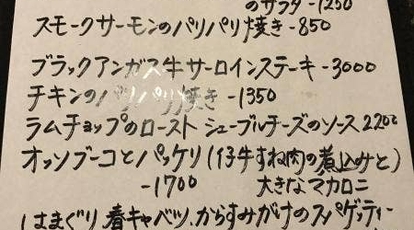 のサラダ-1250
スモークサーモンのパリパリ焼き-850
ブラックアンガス牛サーロインステーキ-3000
チキンのパリパリ焼き-1350
ラムチョップのロースト シェーブルチーズのソース2200
オッソブーコとパッケリ(仔牛すね肉の煮込みと)
-1700 大きなマカロニ
はまぐり、春キャベツ、からすみがけのスパゲッティー